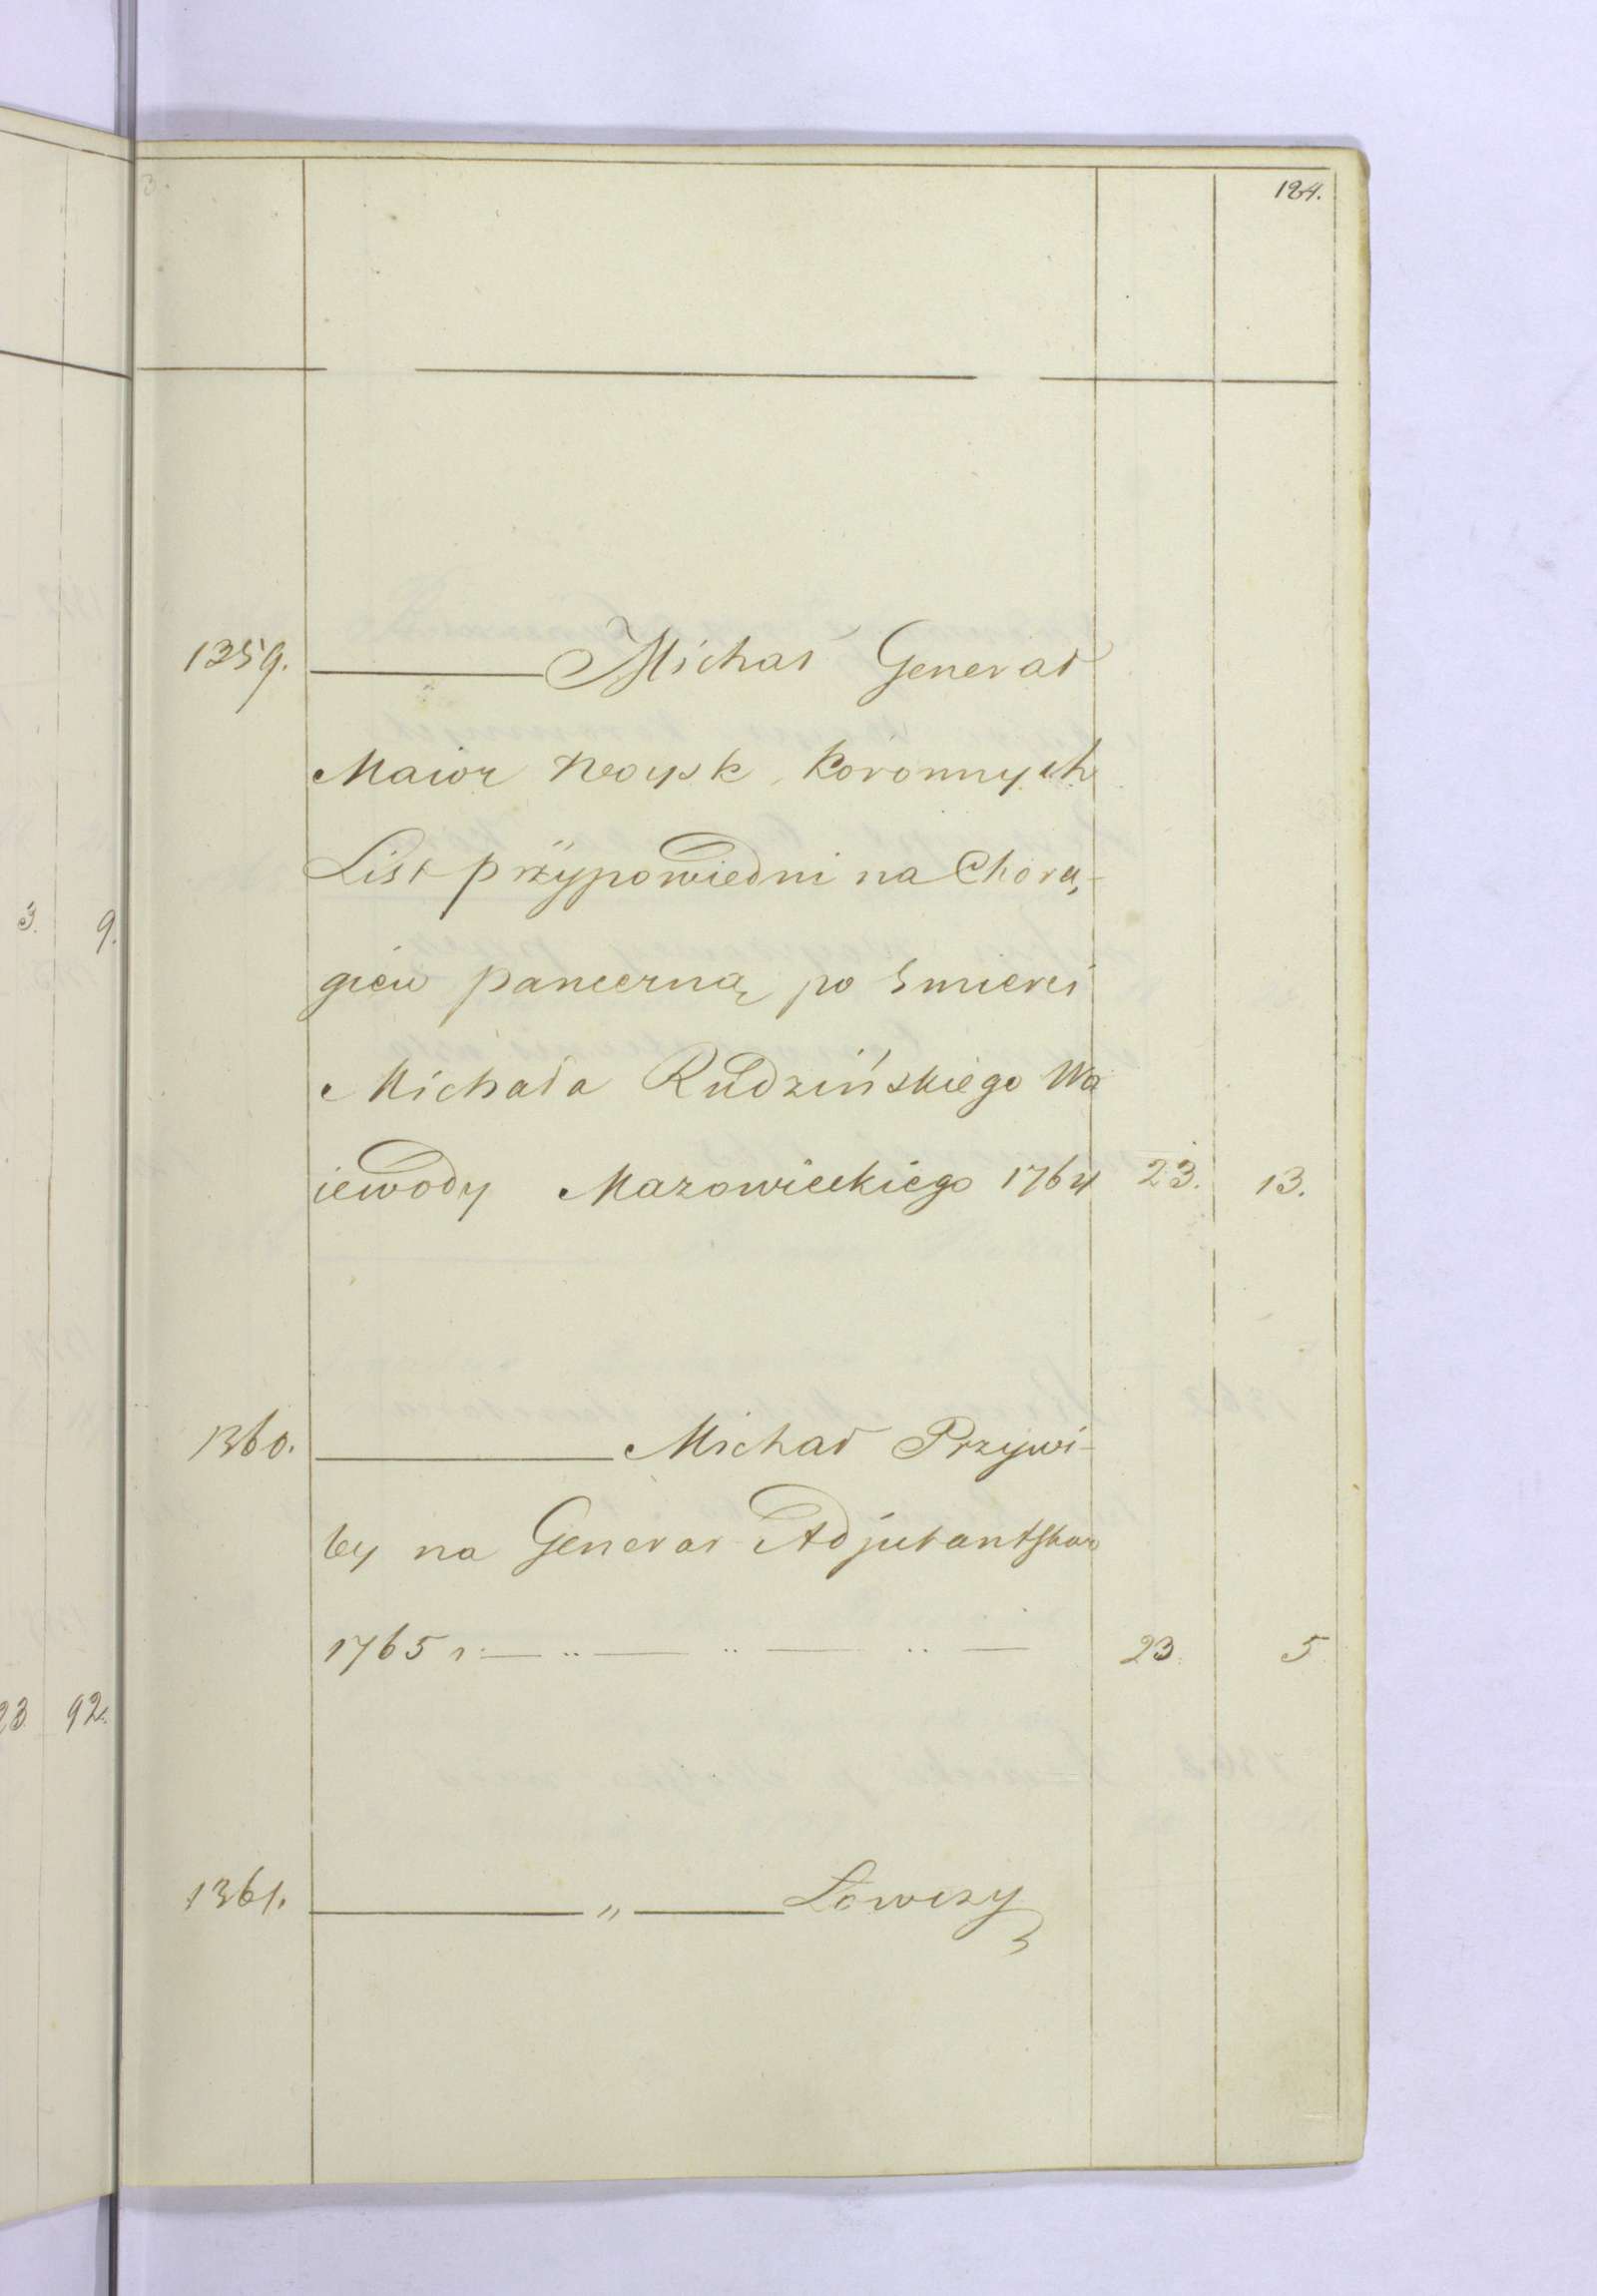 124.
1359. ——— Michał Generał
Maior Woysk Koronnych
List przypowiedni na Chorą-
giew pancerną po śmierci
Michała Rudzińskiego Wo
iewody Mazowieckiego 1764 23. 13.
1360. ——— Michał Przywi-
ley na Generał Adjutantstwo
1765 r. — .. — .. — .. — 23. 5
1361. ——— " ——— Łowczy
3. 9.
23 92.